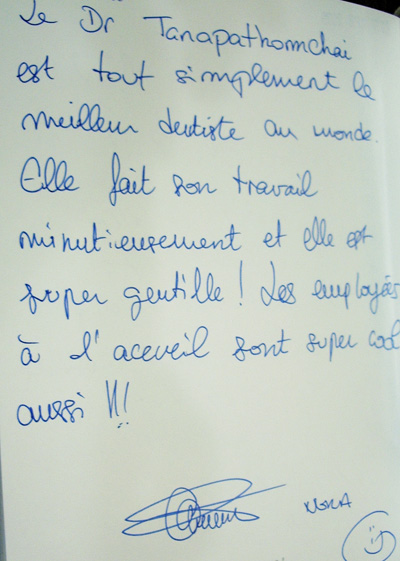 Le Dr Tanapathomchai
est tout simplement le
meilleur dentiste au monde.
Elle fait son travail
minutieusement et elle est
super gentille ! Les employés
à l'acceuil sont super cool
aussi !!!